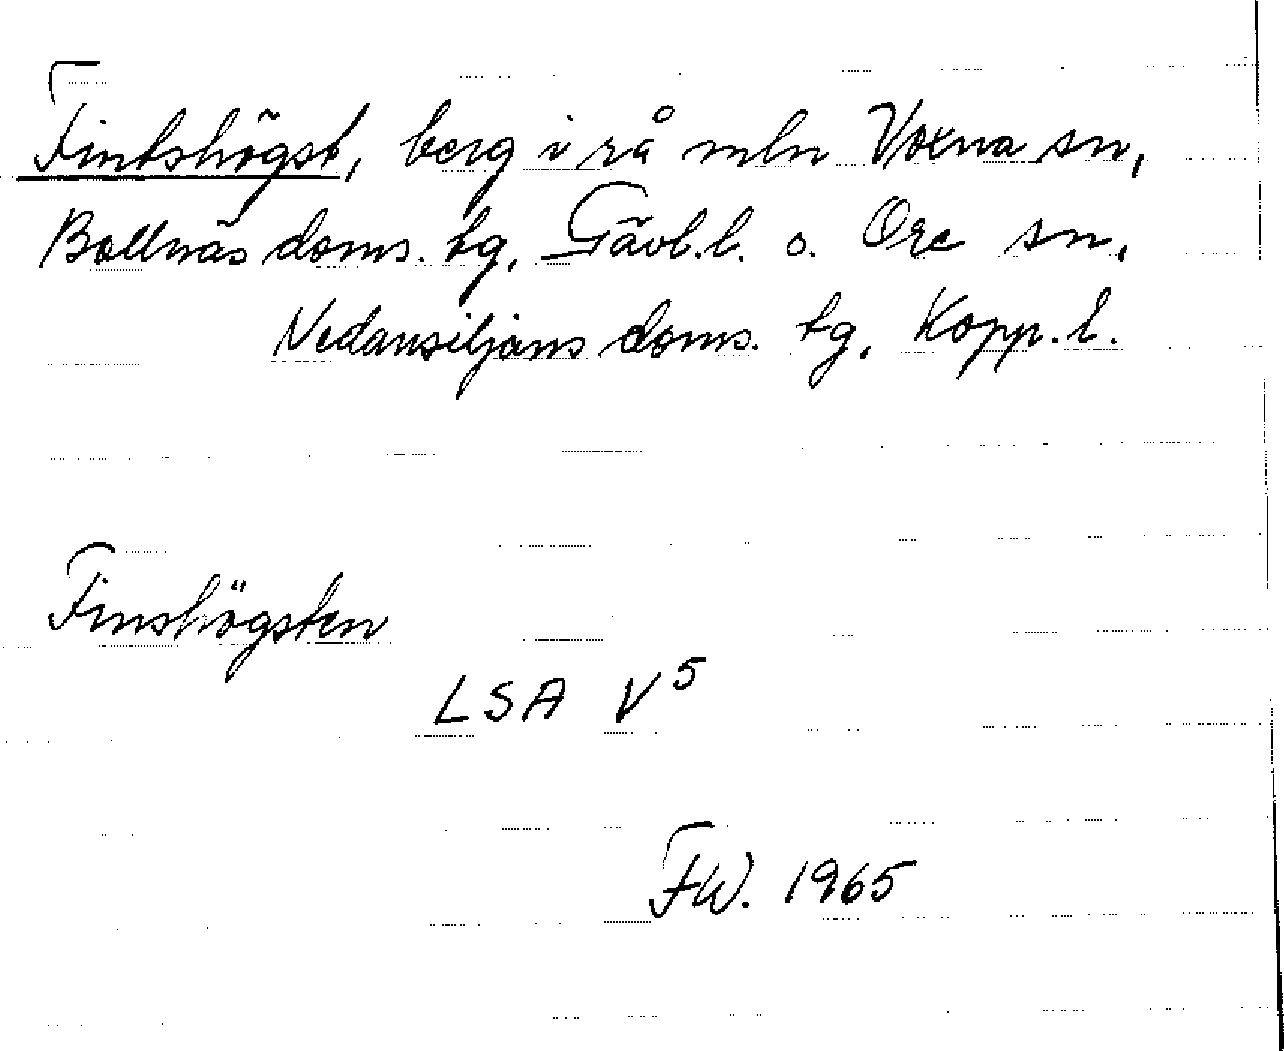 Fintshögst, berg i rå mln Voxna sn,
Bollnäs doms. tg, Gävl.l. o. Ore sn,
Nedansiljans doms. tg, Kopp.l.
Finshögsten
LSA V5
FW. 1965